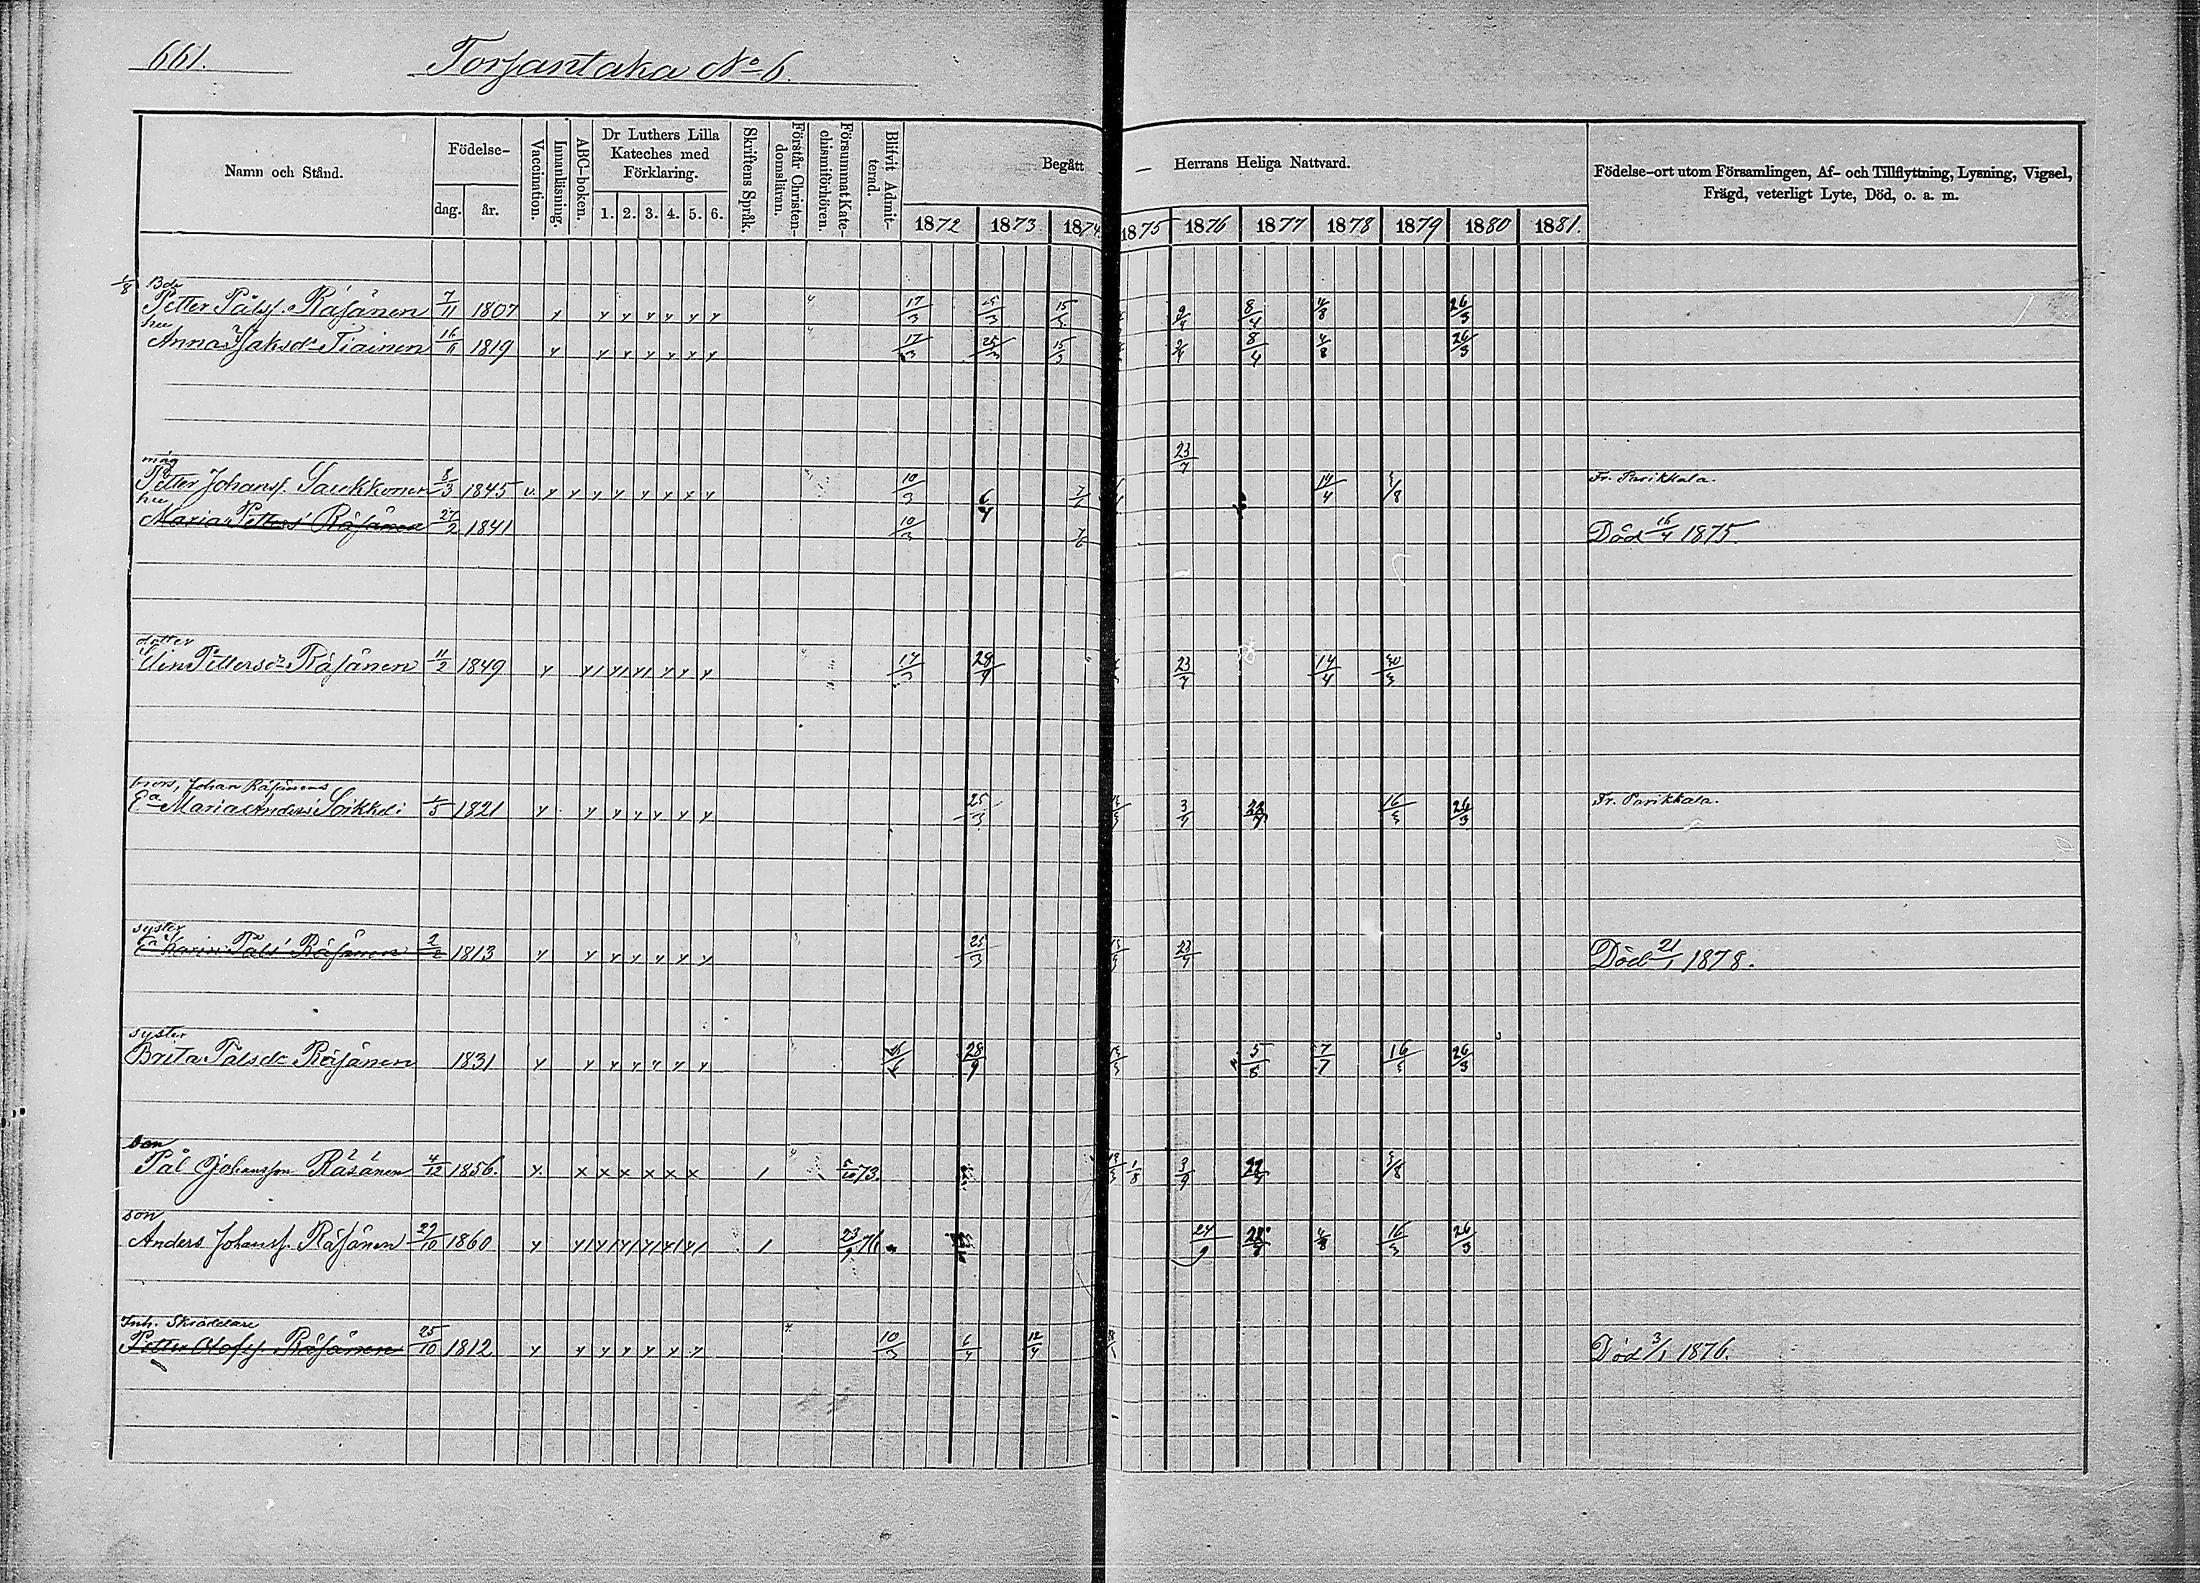 661. Torsantaka No 6.
Namn och Stånd. Födelse- dag. år. Vaccination. Innanläsning. ABC-boken. Dr Luthers Lilla Kateches med Förklaring. 1. 2. 3. 4. 5. 6. Skriftens Språk. Förstår Christendomsläran. Försummat Katechismiförhören. Blifvit Admitterad. Begått Herrans Heliga Nattvard. 1872 1873 1874 1875 1876 1877 1878 1879 1880 1881. Födelse-ort utom Församlingen, Af- och Tillflyttning, Lysning, Vigsel, Frägd, veterligt Lyte, Död, o. a. m.
1/8 Bde
Petter Pålss. Räsänen 7/11 1807 17/3 25/3 15/3 2/4 8/4 4/8 26/3
hu
Anna Jaksdr Tiainen 16/11 1819 17/3 25/3 15/3 2/4 8/4 4/8 26/3
23/7
måg
Petter Johanss. Saukkonen 8/3 1845 10/3 6/4 14/4 3/8 Fr. Parikkala.
hu
Maria Petters Räsänen 27/2 1841 10/3 7/6 Död 16/4 1875.
dotter
Elin Pettersdr Räsänen 11/2 1849 17/3 28/9 23/7 14/4 30/3
brors, Johan Räsänens
Ea Maria Anders Soikkeli 1/5 1821 25/3 3/9 22/7 16/3 26/3 Fr. Parikkala.
syster
Ea Karin Påls Räsänen 2/2 1813 25/3 23/7 Död 21/1 1878.
syster
Brita Pålsdr Räsänen 1831 28/9 5/8 7/7 16/3 26/3
son
Pål Johansson Räsänen 4/12 1856. 5/10 73. 1/8 3/9 22/7 3/8
son
Anders Johanss. Räsänen 29/10 1860 23/9 76 24/9 4/8 16/3 26/3
Inh. Skräddare
Petter Olofss. Räsänen 25/10 1812 10/3 6/4 12/4 Död 3/1 1876.